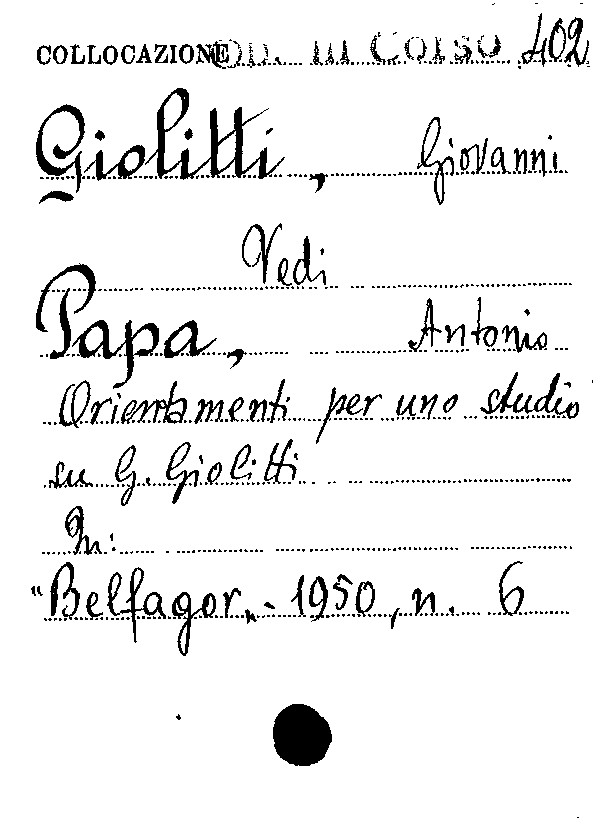 COLLOCAZIONE OD. in Corso 402
Giolitti, Giovanni
Vedi
Papa, Antonio
Orientamenti per uno studio
su G. Giolitti
In:
"Belfagor„- 1950, n. 6